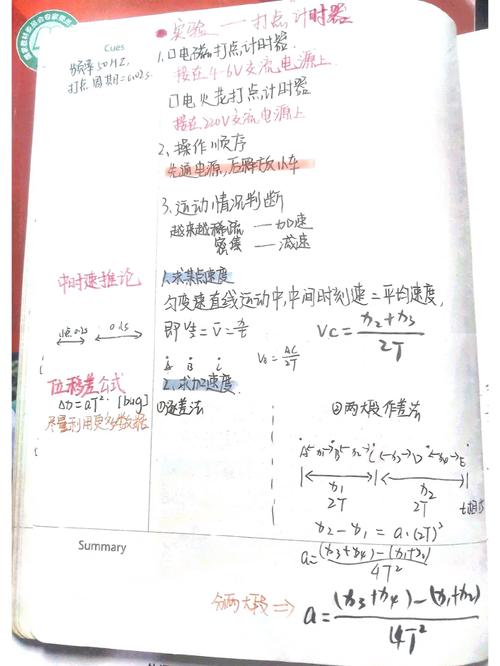 Cues
频率50HZ,
打点周期=0.02s.
实验 — 打点计时器
1.口电磁打点计时器.
接在4-6V交流电源上
口电火花打点计时器
接在220V交流电源上
2、操作顺序
先通电源,后释放小车
3、运动情况判断
越来越稀疏 — 加速
密集 — 减速
中时速推论
1.求某点速度
匀变速直线运动中,中间时刻速=平均速度,
即 = v̄ = x/t
VC = (x2+x3)/2T
0.1s
A B C
VB = AC/2T
位移差公式
Δx = aT². [bug]
尽量利用更多数据
2.求加速度
①逐差法
②两大段作差法
A x1 B x2 C x3 D x4 E
x1 x2
2T 2T
x2 - x1 = a·(2T)²
a = (x3+x4)-(x1+x2)/4T²
Summary
分两大段 ⇒ a = (x3+x4)-(x1+x2)/4T²